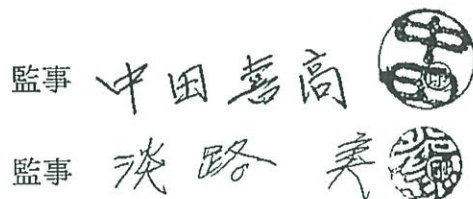 監事 中田喜高
監事 淡路 美